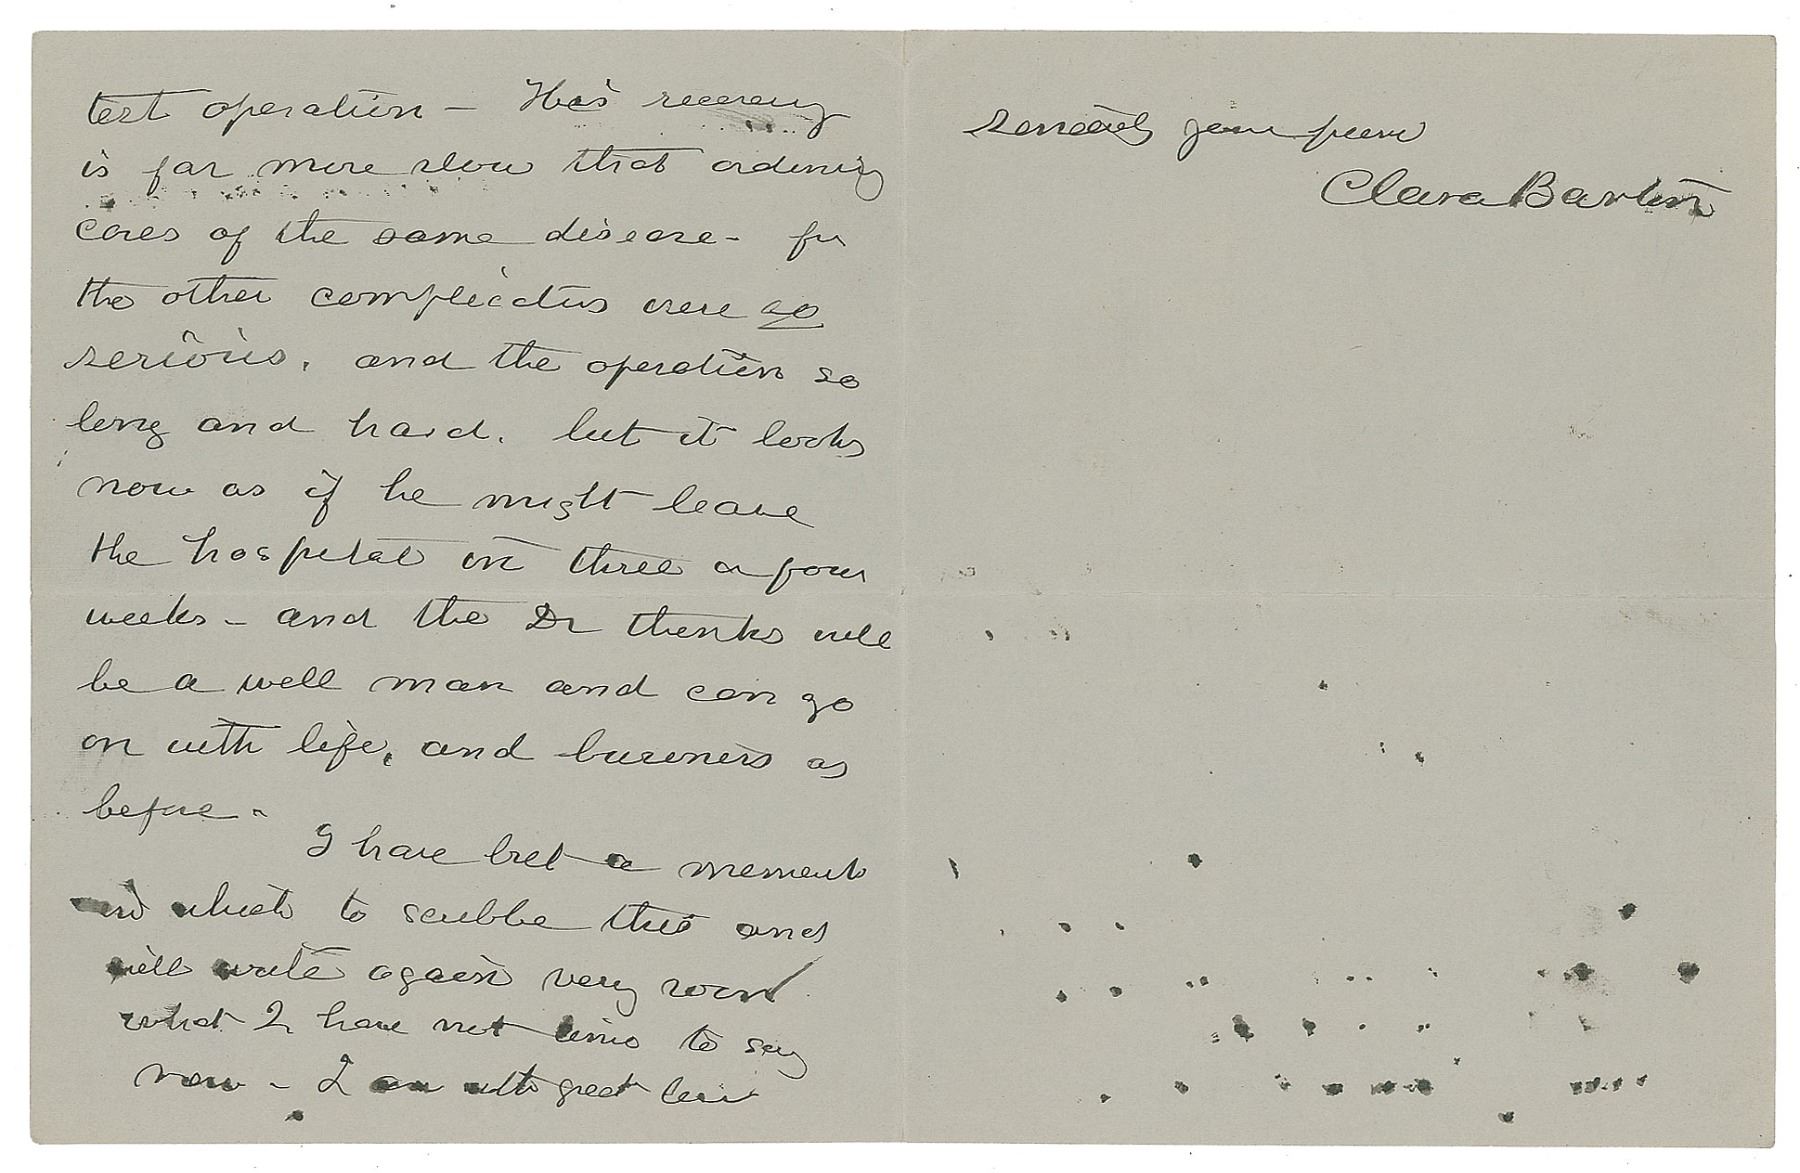 test operation – His recovery
is far more slow that ordinary
cases of the same disease – for
the other complications were so
serious, and the operation so
long and hard. but it looks
now as if he might leave
the hospital in three or four
weeks – and the Dr thinks will
be a well man and can go
on with life, and business as
before –
I have but a moment
in which to scribble this and
will write again very soon
what I have not time to say
now – I am with great love
sincerely your friend
Clara Barton